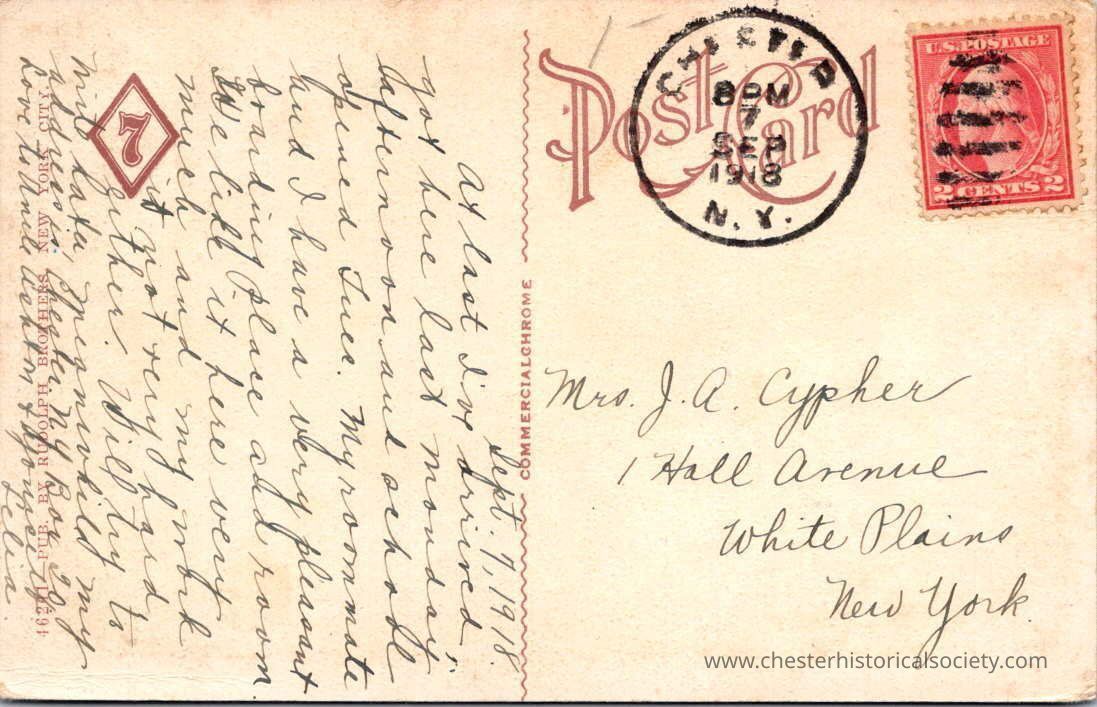 Post Card
CHESTER
8 PM
7
SEP
1918
N.Y.
U.S. POSTAGE
2 CENTS 2
7
COMMERCIALCHROME
PUB. BY RUDOLPH BROTHERS, NEW YORK CITY.
Sept. 7, 1918.
At last I've arrived,
got here last Monday
afternoon and school
opened Tues. My roommate
and I have a very pleasant
boarding place and room.
We like it here very
much and my work
it not very hard
either. Will try to
write later, Meanwhile my
address is Chester NY Box 29
Love to Aunt
Lelia
Mrs. J. A. Cypher
1 Hall Avenue
White Plains
New York.
www.chesterhistoricalsociety.com